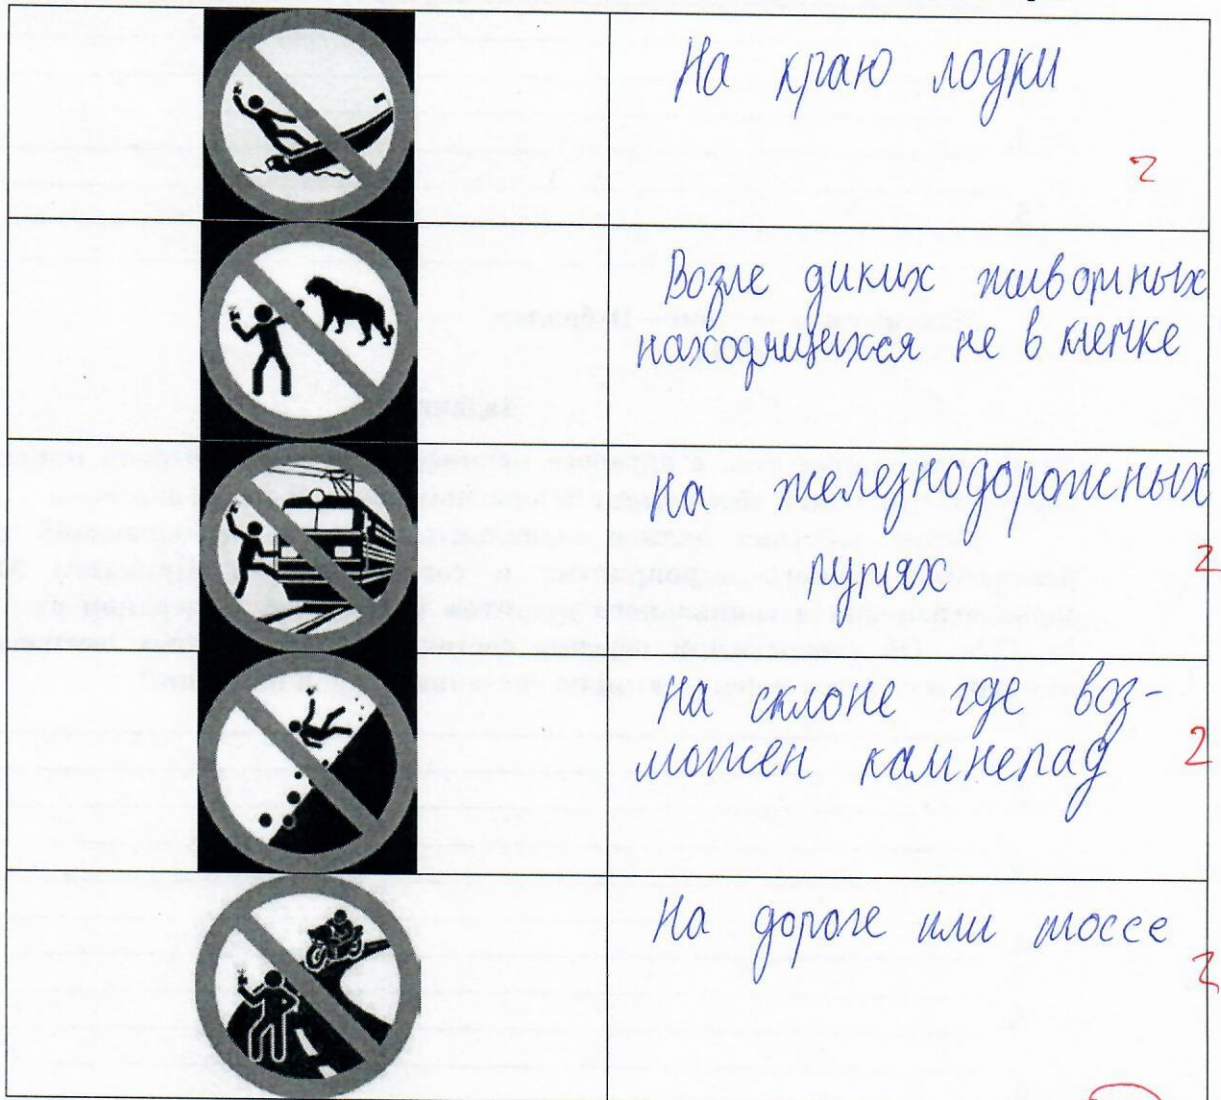 На краю лодки
2
Возле диких животных
находящихся не в клетке
На железнодорожных
путях
2
На склоне где воз-
можен камнепад
2
На дороге или шоссе
2